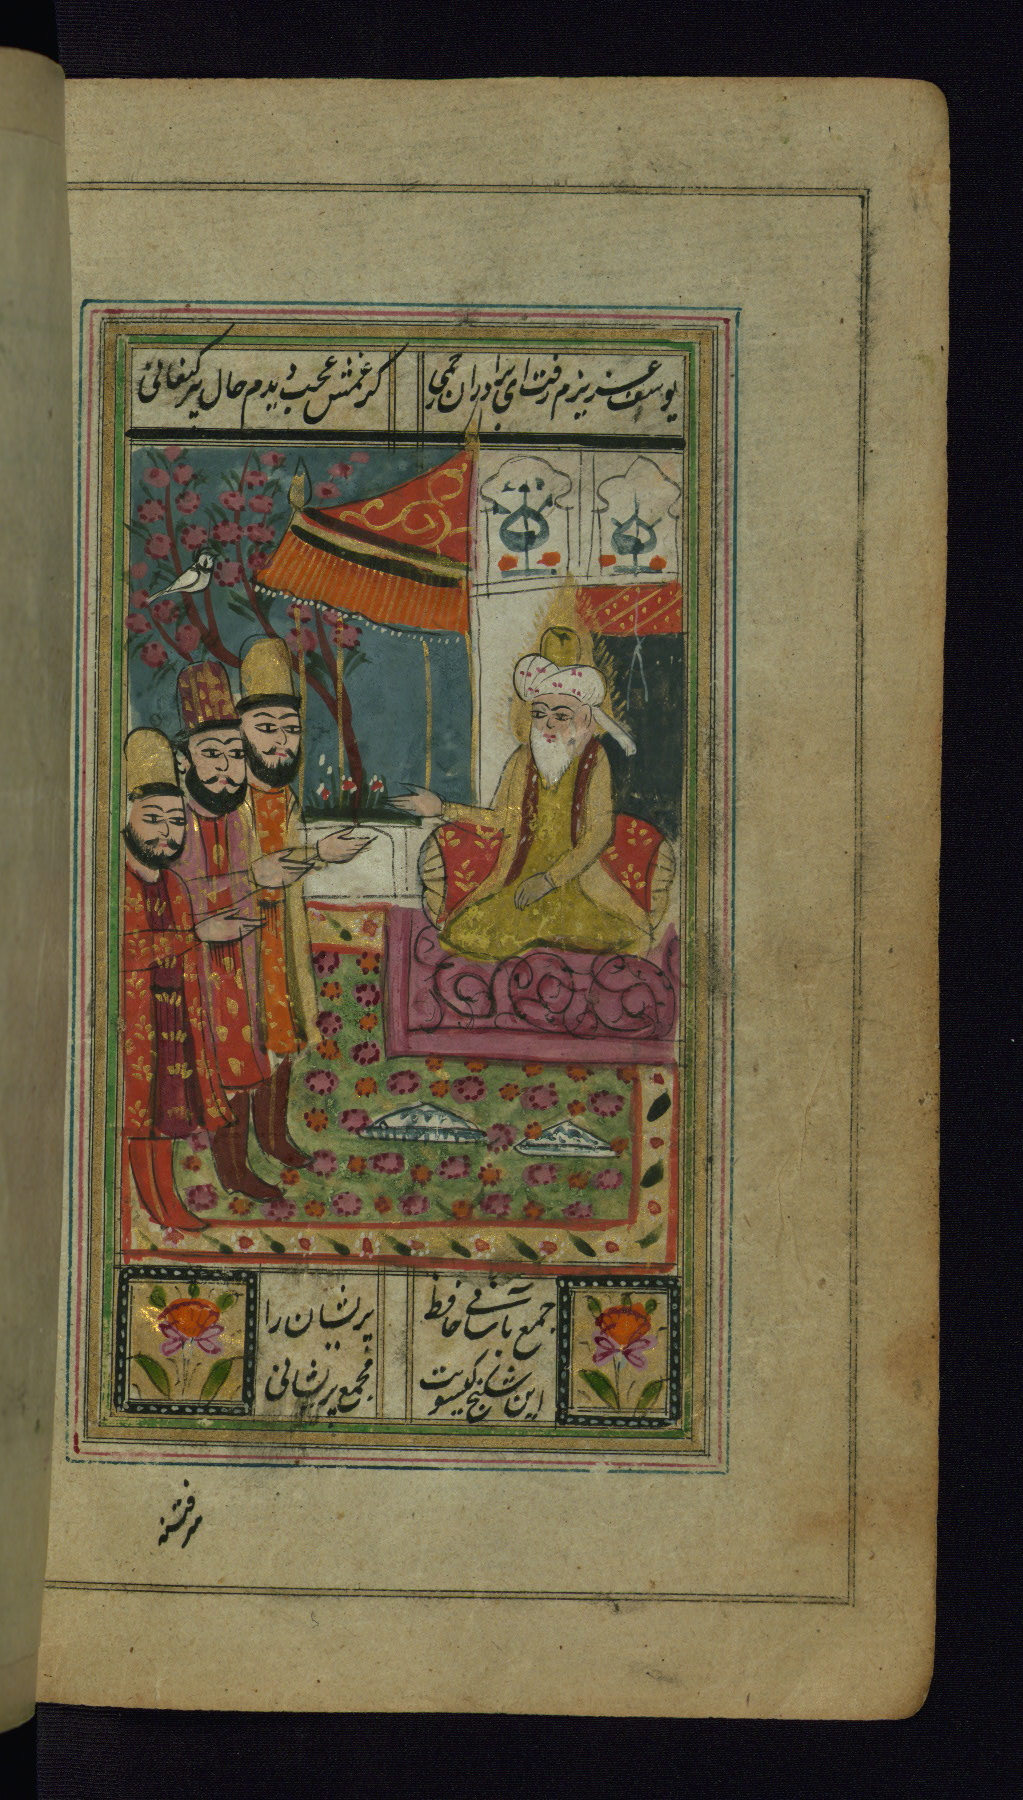 یوسف عزیزم رفت ای برادران رحمی
کز غمش عجب دیدم حال پیر کنعانی
جمع باش ای حافظ
پریشان را
این شکنج گیسویت
مجمع پریشانی